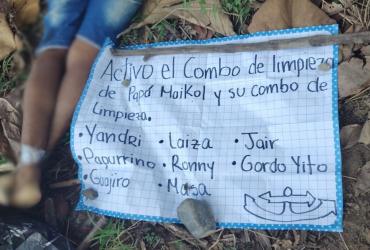 Activo el Combo de limpieza
de Papá Maikol y su combo de
limpieza.
• Yandri • Laiza • Jair
• Papurrino • Ronny • Gordo Yito
• Guajiro • Masa